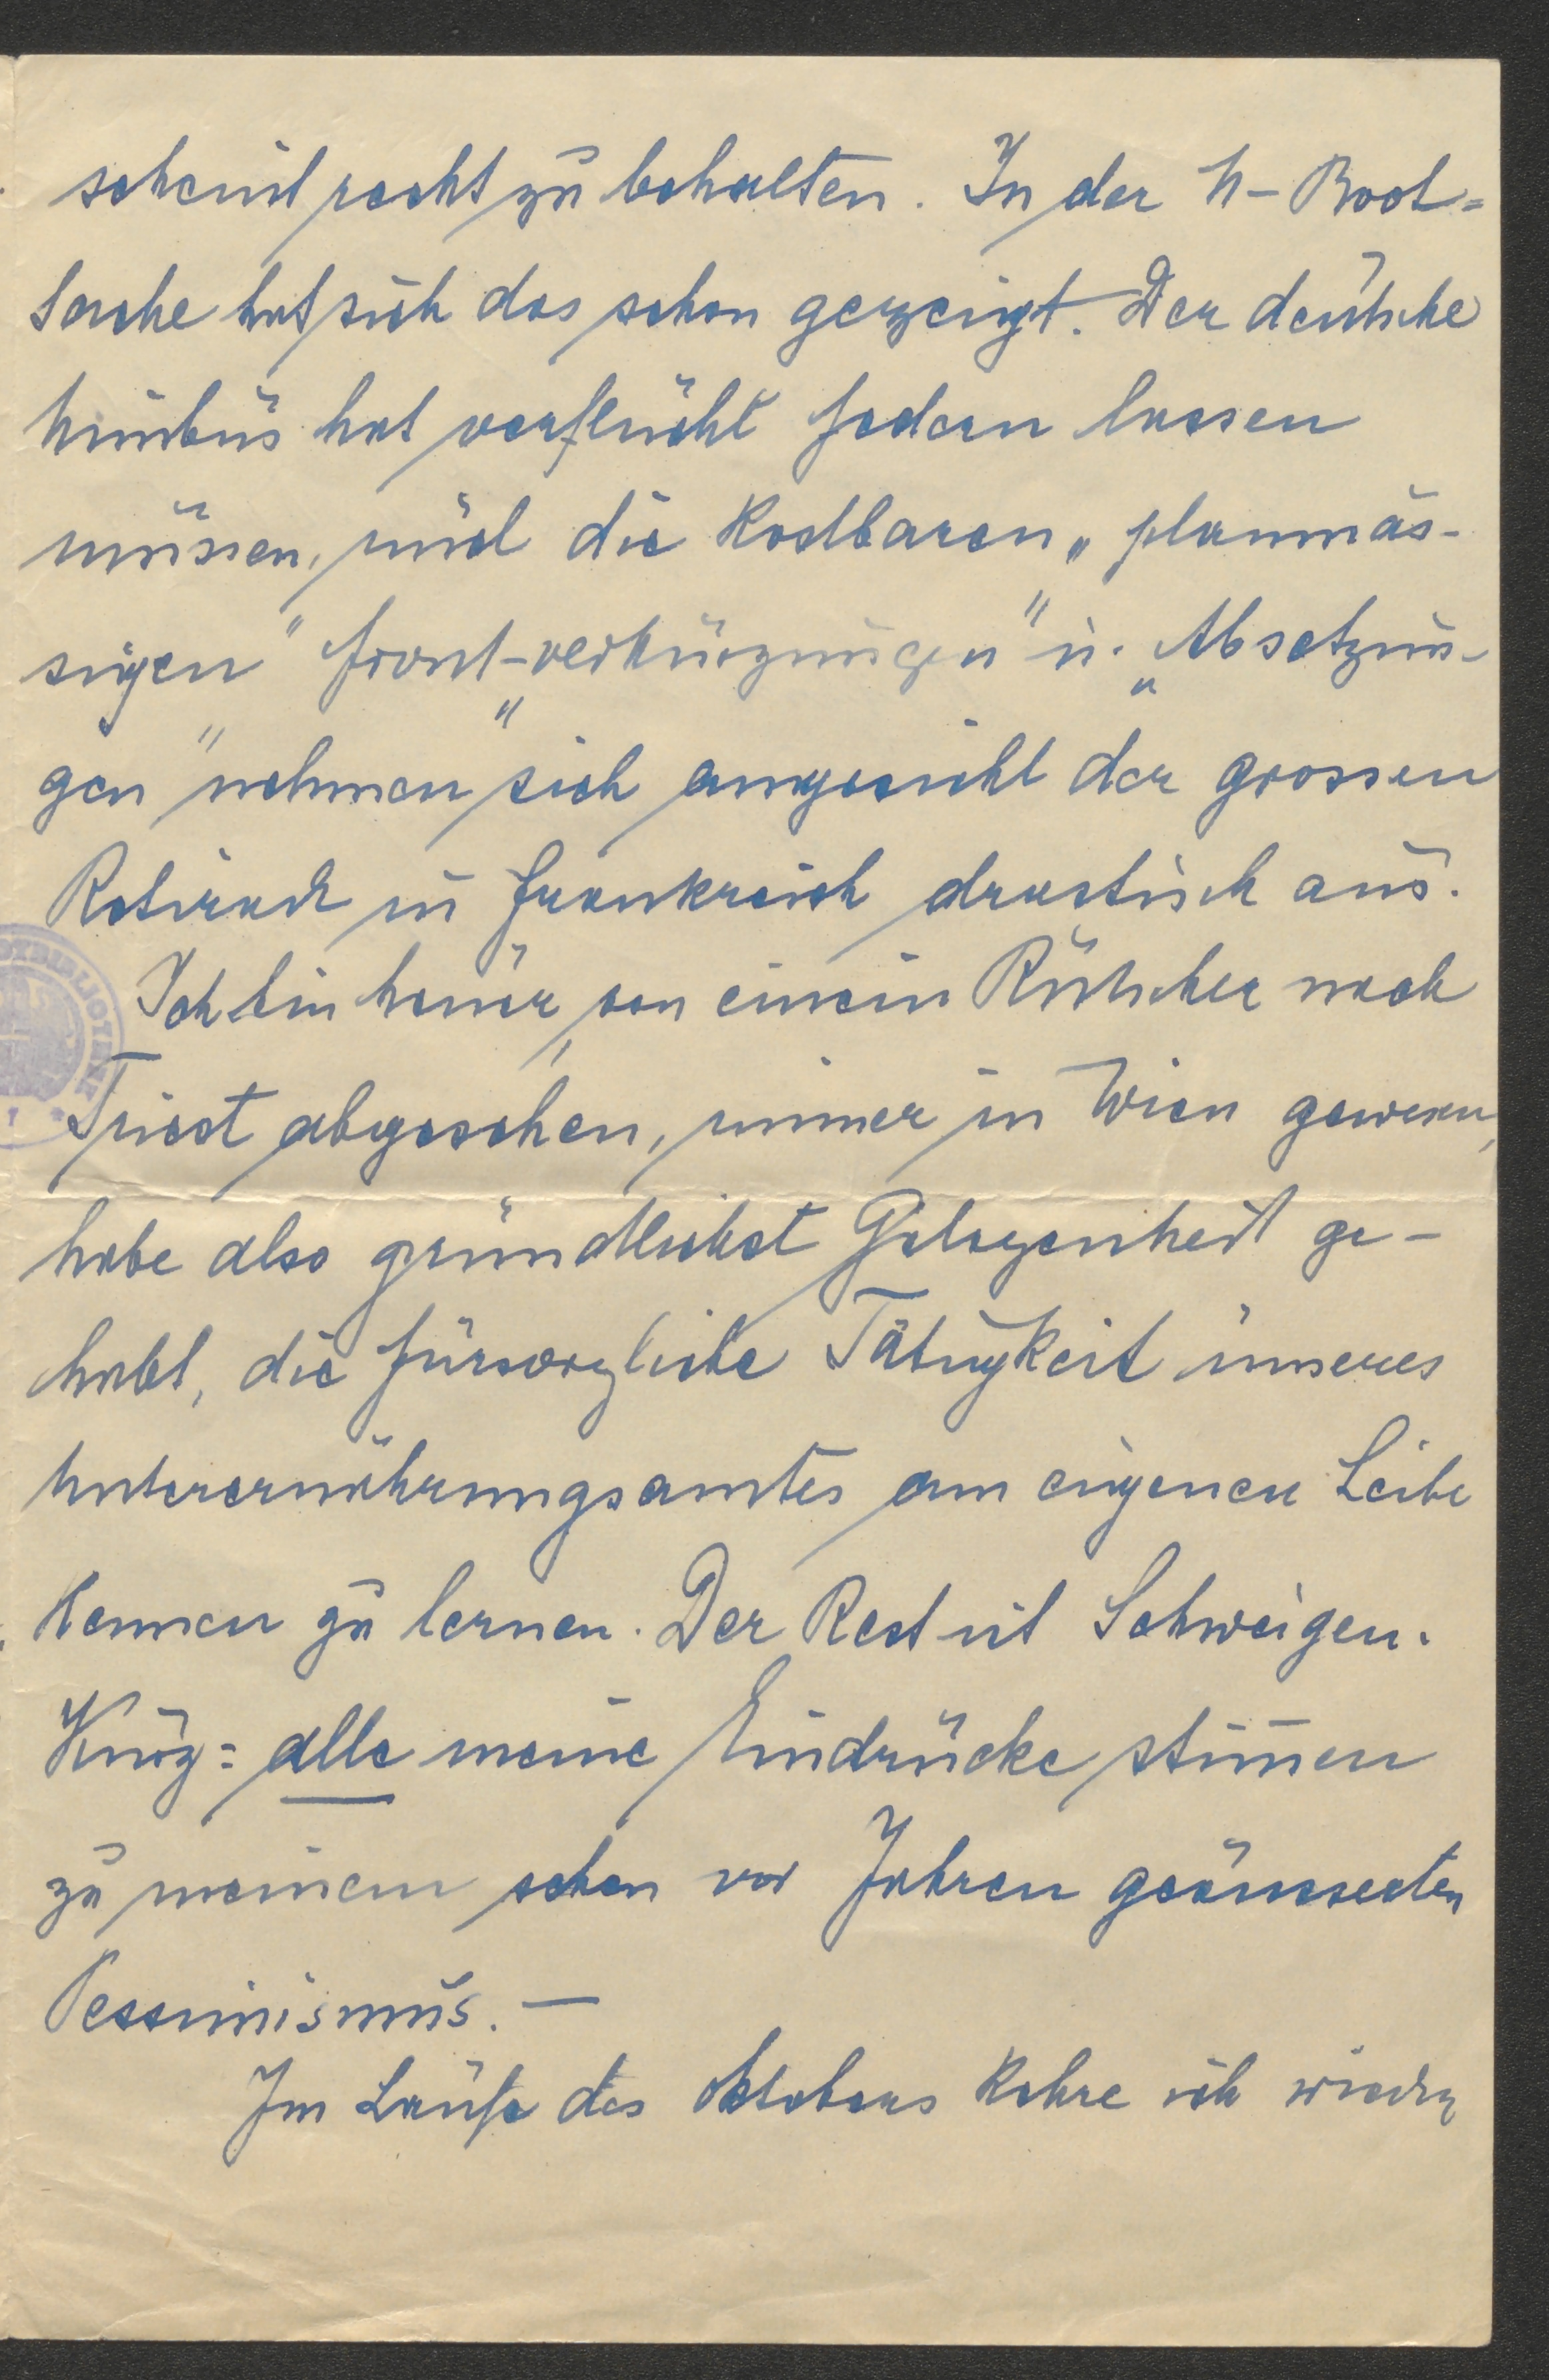 scheint recht zu behalten. In der U-Boot=
Sache hat sich das schon gezeigt. Der deutsche
Nimbus hat verflucht Federn lassen
müssen, und die kostbaren „planmäs-
sigen" „Front-verkürzungen" u. „Absetzun-
gen" nehmen sich angesicht der grossen
Retirade in Frankreich drastisch aus.
Ich bin heuer, von einem Rutscher nach
Triest abgesehen, immer in Wien gewesen,
habe also gründlichst Gelegenheit ge-
habt, die fürsorgliche Tätigkeit unseres
Unterernährungsamtes am eigenen Leibe
kennen zu lernen. Der Rest ist Schweigen.
Kurz: alle meine Eindrücke stim̅en
zu meinem schon vor Jahren geäusserten
Pessimismus. —
Im Laufe des Oktobers kehre ich wieder